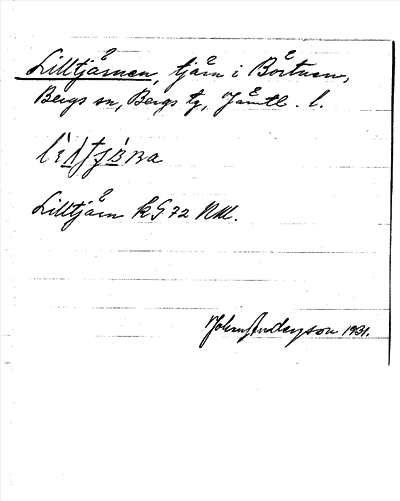 Lilltjårnen, tjårn i Börtnen,
Bergs sn, Bergs tg, Jämtl. l.
Lilltjårn k G 72 RM.
John Anderson 1931.